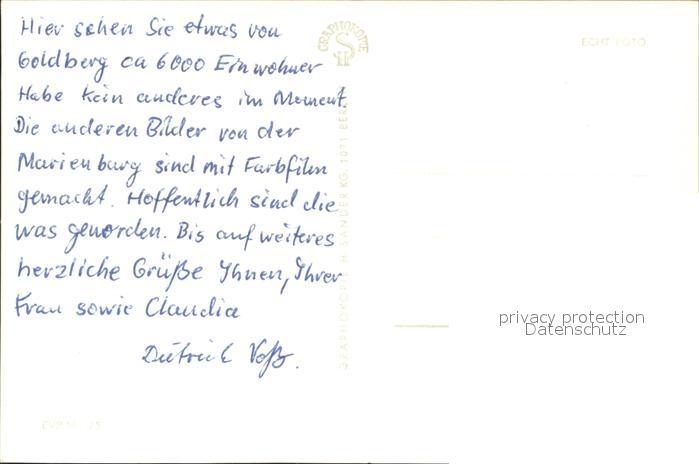 Hier sehen Sie etwas von
Goldberg ca 6000 Einwohner
Habe kein anderes im Moment.
Die anderen Bilder von der
Marienburg sind mit Farbfilm
gemacht. Hoffentlich sind die
was geworden. Bis auf weiteres
herzliche Grüße Ihnen, Ihrer
Frau sowie Claudia
Dietrich Voß.
GRAPHOKOPIE
H S
ECHT FOTO
GRAPHOKOPIE H. SANDER KG, 1071 BER
privacy protection
Datenschutz